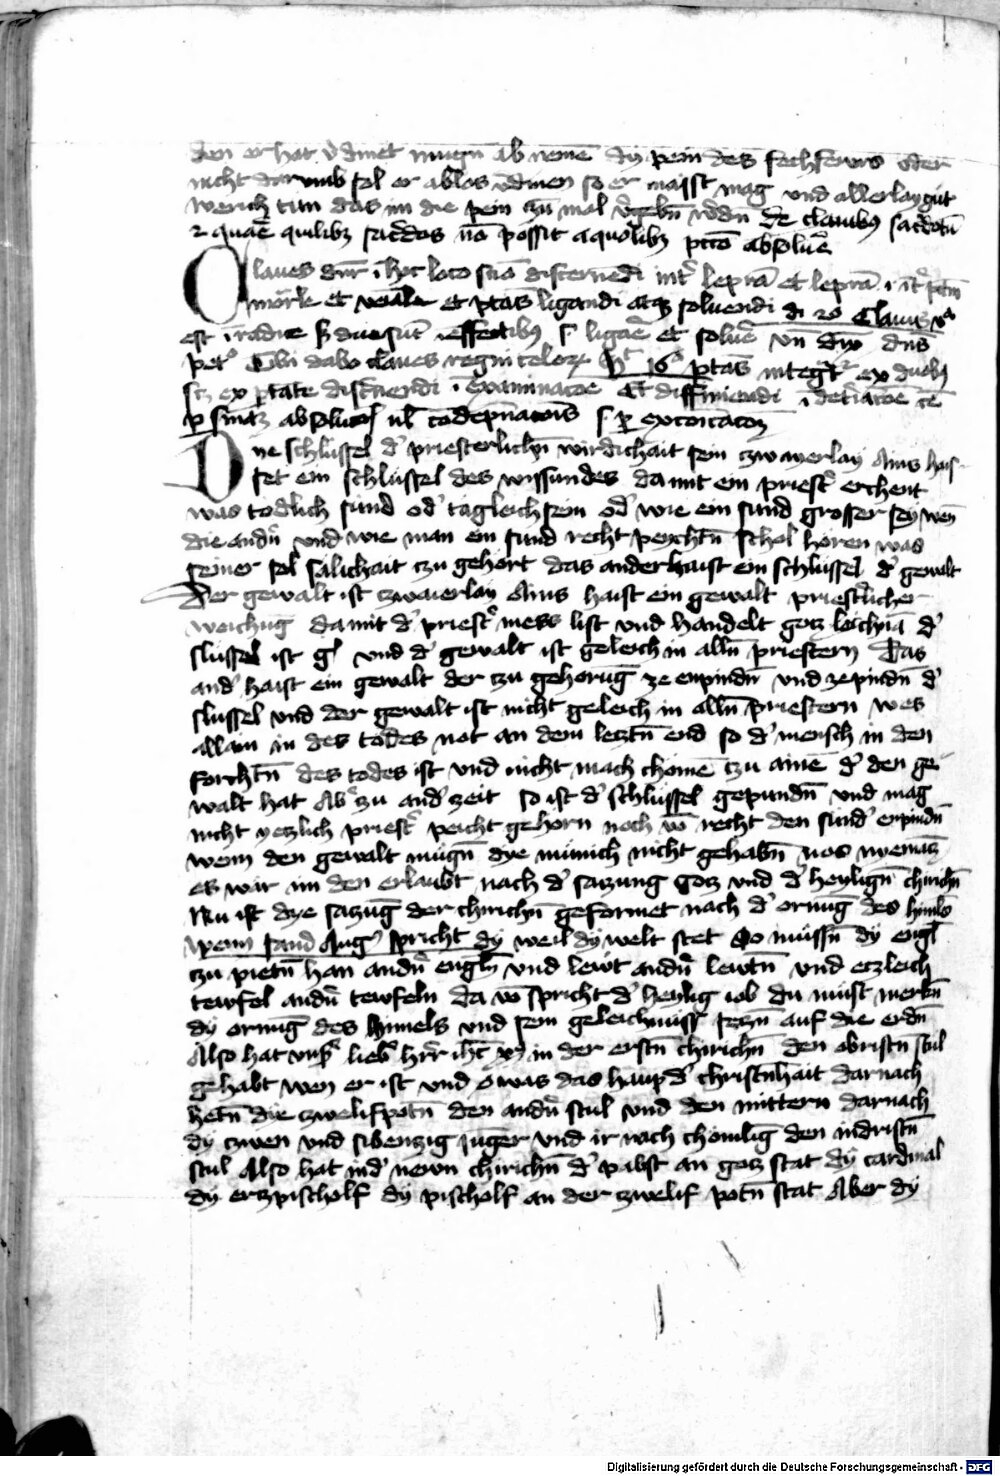 den er hat v̄dinet mugn̄ ab neme dy pein des fechfewrs oder
nicht darumb sol er ablos v̄dinen so er maist mag vnd allerlay gut
werich tun das im die pein czu mal v̓gebn̄ w̓dn̄ De clavibus sacerdotū
quare quilibꝫ sacerdos nō possit a quolibꝫ pctō absolu̓e
Claues dnr̄ ī hoc loco scīa discernēdi int̓ leprā et leprā
mortle et veniale et ptās ligandi atqꝫ soluendi
est ī radice sꝫ due sūt ī effectibꝫ ligare et solu̓e vn̄ dix dn̄s
pet° Tibi dabo claues regni celoꝝ ptās integr̄t ex duobꝫ
scꝫ ex ptate discernendi examinacōe Et diffiniendi
absolucōis ul̓ condepnacōis
Dye schlüssel d̓ priesterlichn̄ wirdichait sein czwayerlay Ains hais
set ein schlüssel des wissundes damit ein priest̓ erchent
was todlich sund od̓ tagleich sein od̓ wie ein sund grosser sey wen
die andn̄ vnd wie man ein sund recht peychtn̄ schol horen was
seiner sel salichait czu gehort das ander haist ein schlüssel d̓ gewalt
Der gewalt ist czwaierlay Ains haist ein gewalt priest̓licher
weichūg damit d̓ priest̓ mess list vnd handelt gotz leichnā d̓
slussel ist vnd d̓ gewalt ist geleich in alln̄ priestern Das
and̓ haist ein gewalt der czu gehorūg ze enpindn̄ vnd ze pindn̄ d̓
slussel vnd der gewalt ist nicht geleich in alln̄ priestern wes
allain in des todes not an dem leztn̄ end so d̓ mensch in den
forchtn̄ des todes ist vnd nicht mach chomē czu ainē d̓ den ge
walt hat Ab̓ zu and̓ zeit so ist d̓ schlüssel gepundn̄ vnd mag
nicht yetzlich priest̓ peicht gehorn noch vō recht den sund̓ enpindn̄
wenn den gewalt mugn̄ dye münich nicht gehabn̄
es wär im den erlaubt nach d̓ satzung gotz vnd d̓ heylign̄ chirichn̄
Nu ist dye satzūg der chirichn̄ geformet nach d̓ ornūg des hymls
wenn sand Aug̓ spricht dy weil dy welt stet So müssn̄ dy engl
czu pietn̄ han andn̄ engln̄ vnd lewt andn̄ lewtn̄ vnd etzleich
tewfel andn̄ tewfeln da vō spricht d̓ heylig iob du müst merkn̄
dy ornūg des hymels vnd sein geleichnüss setzn̄ auf die erdn̄
Also hat vnser lieb̓ herr ihc xꝰ in der erstn̄ chirichn̄ den obristn̄ stul
gehabt wen er ist vnd ē was das haup d̓ christnhait darnach
hetn̄ die zwelifpotn̄ den andn̄ stul vnd den mittern darnach
dy czwen vnd sibenzig jūger vnd ir nach chomlīg den indristn̄
stul Also hat ind̓ newn chirichn̄ d̓ pabst an gotz stat dy cardinal
dy erczpischolf dy pischolf an der zwelif potn̄ stat Aber dy
Digitalisierung gefördert durch die Deutsche Forschungsgemeinschaft - DFG